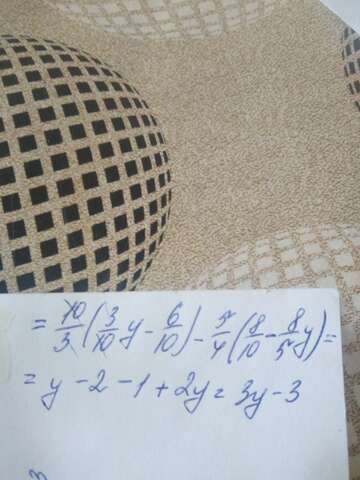 = 10/3 (3/10 y - 6/10) - 5/4 (8/10 - 8/5 y) =
= y - 2 - 1 + 2y = 3y - 3